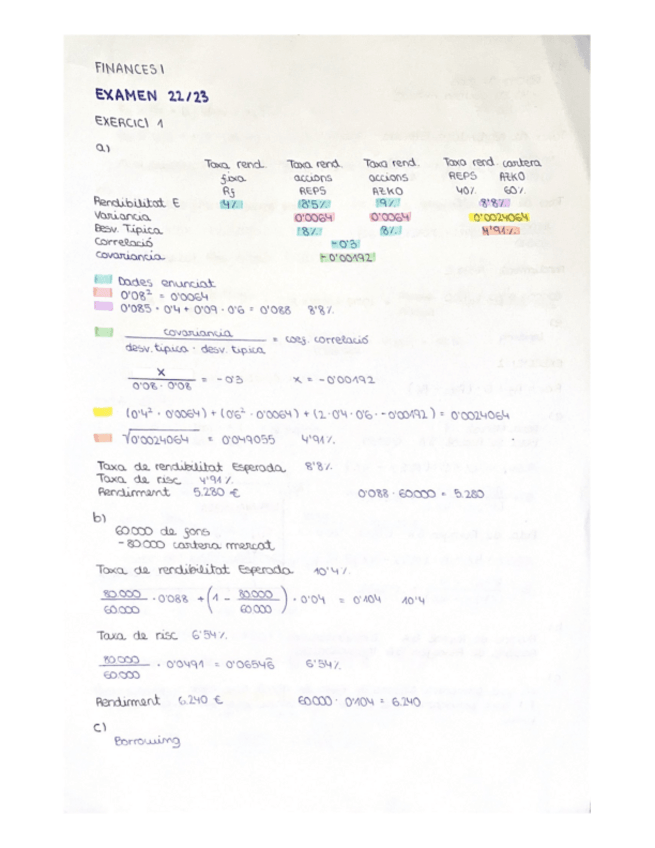 FINANCES I
EXAMEN 22/23
EXERCICI 1
a)
Taxa rend. fixa Rf
Taxa rend. accions REPS
Taxa rend. accions AZKO
Taxa rend. cartera
REPS AZKO
40% 60%
Rendibilitat E 4% 8'5% 9% 8'8%
Variancia 0'0064 0'0064 0'0024064
Desv. Tipica 8% 8% 4'91%
Correlació -0'3
Covariancia -0'00192
Dades enunciat
0'08² = 0'0064
0'085 · 0'4 + 0'09 · 0'6 = 0'088 8'8%
covariancia / desv. tipica · desv. tipica = coej. correlació
x / 0'08 · 0'08 = -0'3 x = -0'00192
(0'4² · 0'0064) + (0'6² · 0'0064) + (2 · 0'4 · 0'6 · -0'00192) = 0'0024064
√0'0024064 = 0'049055 4'91%
Taxa de rendibilitat Esperada 8'8%
Taxa de risc 4'91%
Rendiment 5.280 € 0'088 · 60000 = 5.280
b)
60000 de fons
-80000 cartera mercat
Taxa de rendibilitat Esperada 10'4%
80.000 / 60.000 · 0'088 + (1 - 80.000 / 60.000) · 0'04 = 0'104 10'4
Taxa de risc 6'54%
80.000 / 60.000 · 0'0491 = 0'06546 6'54%
Rendiment 6.240 € 60000 · 0'104 = 6.240
c)
Borrowing